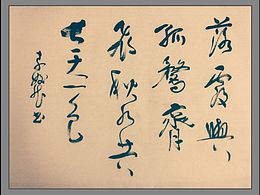 落霞與
孤鶩齊
飛秋水共
長天一色
書